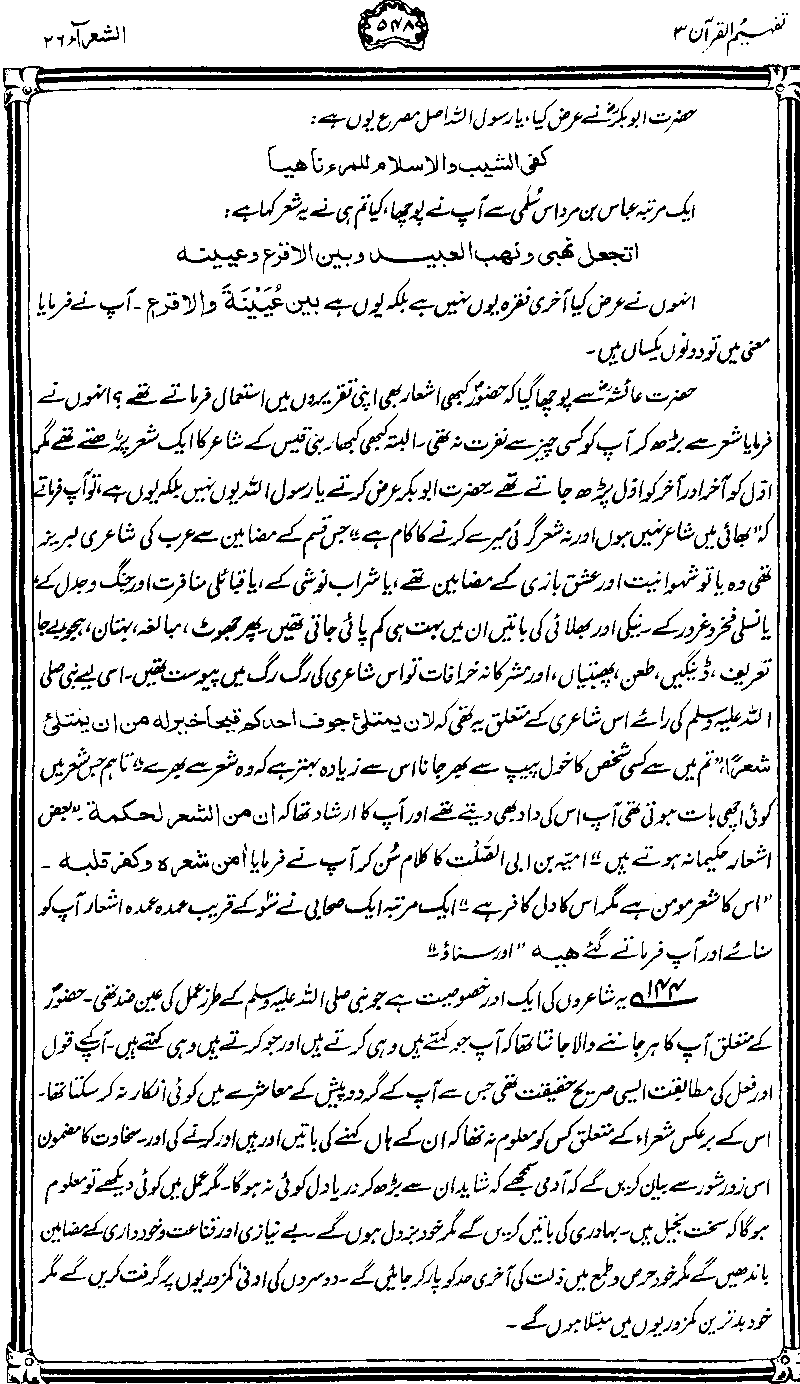 تفہیم القرآن ۳
۵۴۸
الشعرآء ۲۶
حضرت ابوبکرؓ نے عرض کیا، یا رسول اللہ اصل مصرع یوں ہے:
کفی الشیب والاسلام للمرء ناھیا
ایک مرتبہ عباس بن مرداس سُلَمی سے آپ نے پوچھا، کیا تم ہی نے یہ شعر کہا ہے:
اتجعل نھبی ونھب العبید وبین الاقرع وعیینہ
انہوں نے عرض کیا آخری فقرہ یوں نہیں ہے بلکہ یوں ہے بین عُیَیْنَۃَ والاقرع۔ آپ نے فرمایا
معنی میں تو دونوں یکساں ہیں۔
حضرت عائشہؓ سے پوچھا گیا کہ حضورؐ کبھی اشعار بھی اپنی تقریروں میں استعمال فرماتے تھے؟ انہوں نے
فرمایا شعر سے بڑھ کر آپ کو کسی چیز سے نفرت نہ تھی۔ البتہ کبھی کبھار بنی قیس کے شاعر کا ایک شعر پڑھتے تھے مگر
اوّل کو آخر اور آخر کو اوّل پڑھ جاتے تھے۔ حضرت ابوبکر عرض کرتے یا رسول اللہ یوں نہیں بلکہ یوں ہے، تو آپ فرماتے
کہ "بھائی میں شاعر نہیں ہوں اور نہ شعر گوئی میرے کرنے کا کام ہے"۔ جس قسم کے مضامین سے عرب کی شاعری لبریز
تھی وہ یا تو شہوانیت اور عشق بازی کے مضامین تھے، یا شراب نوشی کے، یا قبائلی منافرت اور جنگ وجدل کے،
یا نسلی فخر و غرور کے۔ نیکی اور بھلائی کی باتیں ان میں بہت ہی کم پائی جاتی تھیں۔ پھر جھوٹ، مبالغہ، بہتان، ہجو، بے جا
تعریف، ڈینگیں، طعن، پھبتیاں، اور مشرکانہ خرافات تو اس شاعری کی رگ رگ میں پیوست تھیں۔ اسی لیے نبی صلی
اللہ علیہ وسلم کی رائے اس شاعری کے متعلق یہ تھی کہ لان یمتلئ جوف احدکم قیحا خیر لہ من ان یمتلئ
شعرًا، "تم میں سے کسی شخص کا خول پیپ سے بھر جانا اس سے زیادہ بہتر ہے کہ وہ شعر سے بھرے"۔ تاہم جس شعر میں
کوئی اچھی بات ہوتی تھی آپ اس کی داد بھی دیتے تھے اور آپ کا ارشاد تھا کہ ان من الشعر لحکمۃ "بعض
اشعار حکیمانہ ہوتے ہیں"۔ امیّہ بن ابی الصَّلْت کا کلام سُن کر آپ نے فرمایا اٰمن شعرہ وکفر قلبہ۔
"اس کا شعر مومن ہے مگر اس کا دل کافر ہے"۔ ایک مرتبہ ایک صحابی نے سَو کے قریب عمدہ عمدہ اشعار آپ کو
سنائے اور آپ فرماتے گئے ھیہ "اور سناؤ"۔
۱۴۴ یہ شاعروں کی ایک اور خصوصیت ہے جو نبی صلی اللہ علیہ وسلم کے طرز عمل کی عین ضد تھی۔ حضورؐ
کے متعلق آپ کا ہر جاننے والا جانتا تھا کہ آپ جو کہتے ہیں وہی کرتے ہیں اور جو کرتے ہیں وہی کہتے ہیں۔ آپ کے قول
اور فعل کی مطابقت ایسی صریح حقیقت تھی جس سے آپ کے گردوپیش کے معاشرے میں کوئی انکار نہ کر سکتا تھا۔
اس کے برعکس شعراء کے متعلق کس کو معلوم نہ تھا کہ ان کے ہاں کہنے کی باتیں اور ہیں اور کرنے کی اور۔ سخاوت کا مضمون
اس زور شور سے بیان کریں گے کہ آدمی سمجھے کہ شاید ان سے بڑھ کر دریا دل کوئی نہ ہوگا۔ مگر عمل میں کوئی دیکھے تو معلوم
ہوگا کہ سخت بخیل ہیں۔ بہادری کی باتیں کریں گے مگر خود بزدل ہوں گے۔ بے نیازی اور قناعت و خودداری کے مضامین
باندھیں گے مگر خود حرص وطمع میں ذلت کی آخری حد کو پار کر جائیں گے۔ دوسروں کی ادنٰی کمزوریوں پر گرفت کریں گے مگر
خود بدترین کمزوریوں میں مبتلا ہوں گے۔